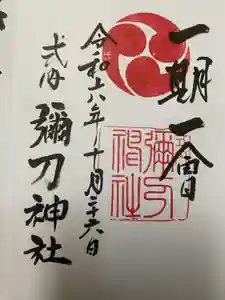 一期一會
令和六年十月二十六日
式内
彌刀神社
彌刀
神社